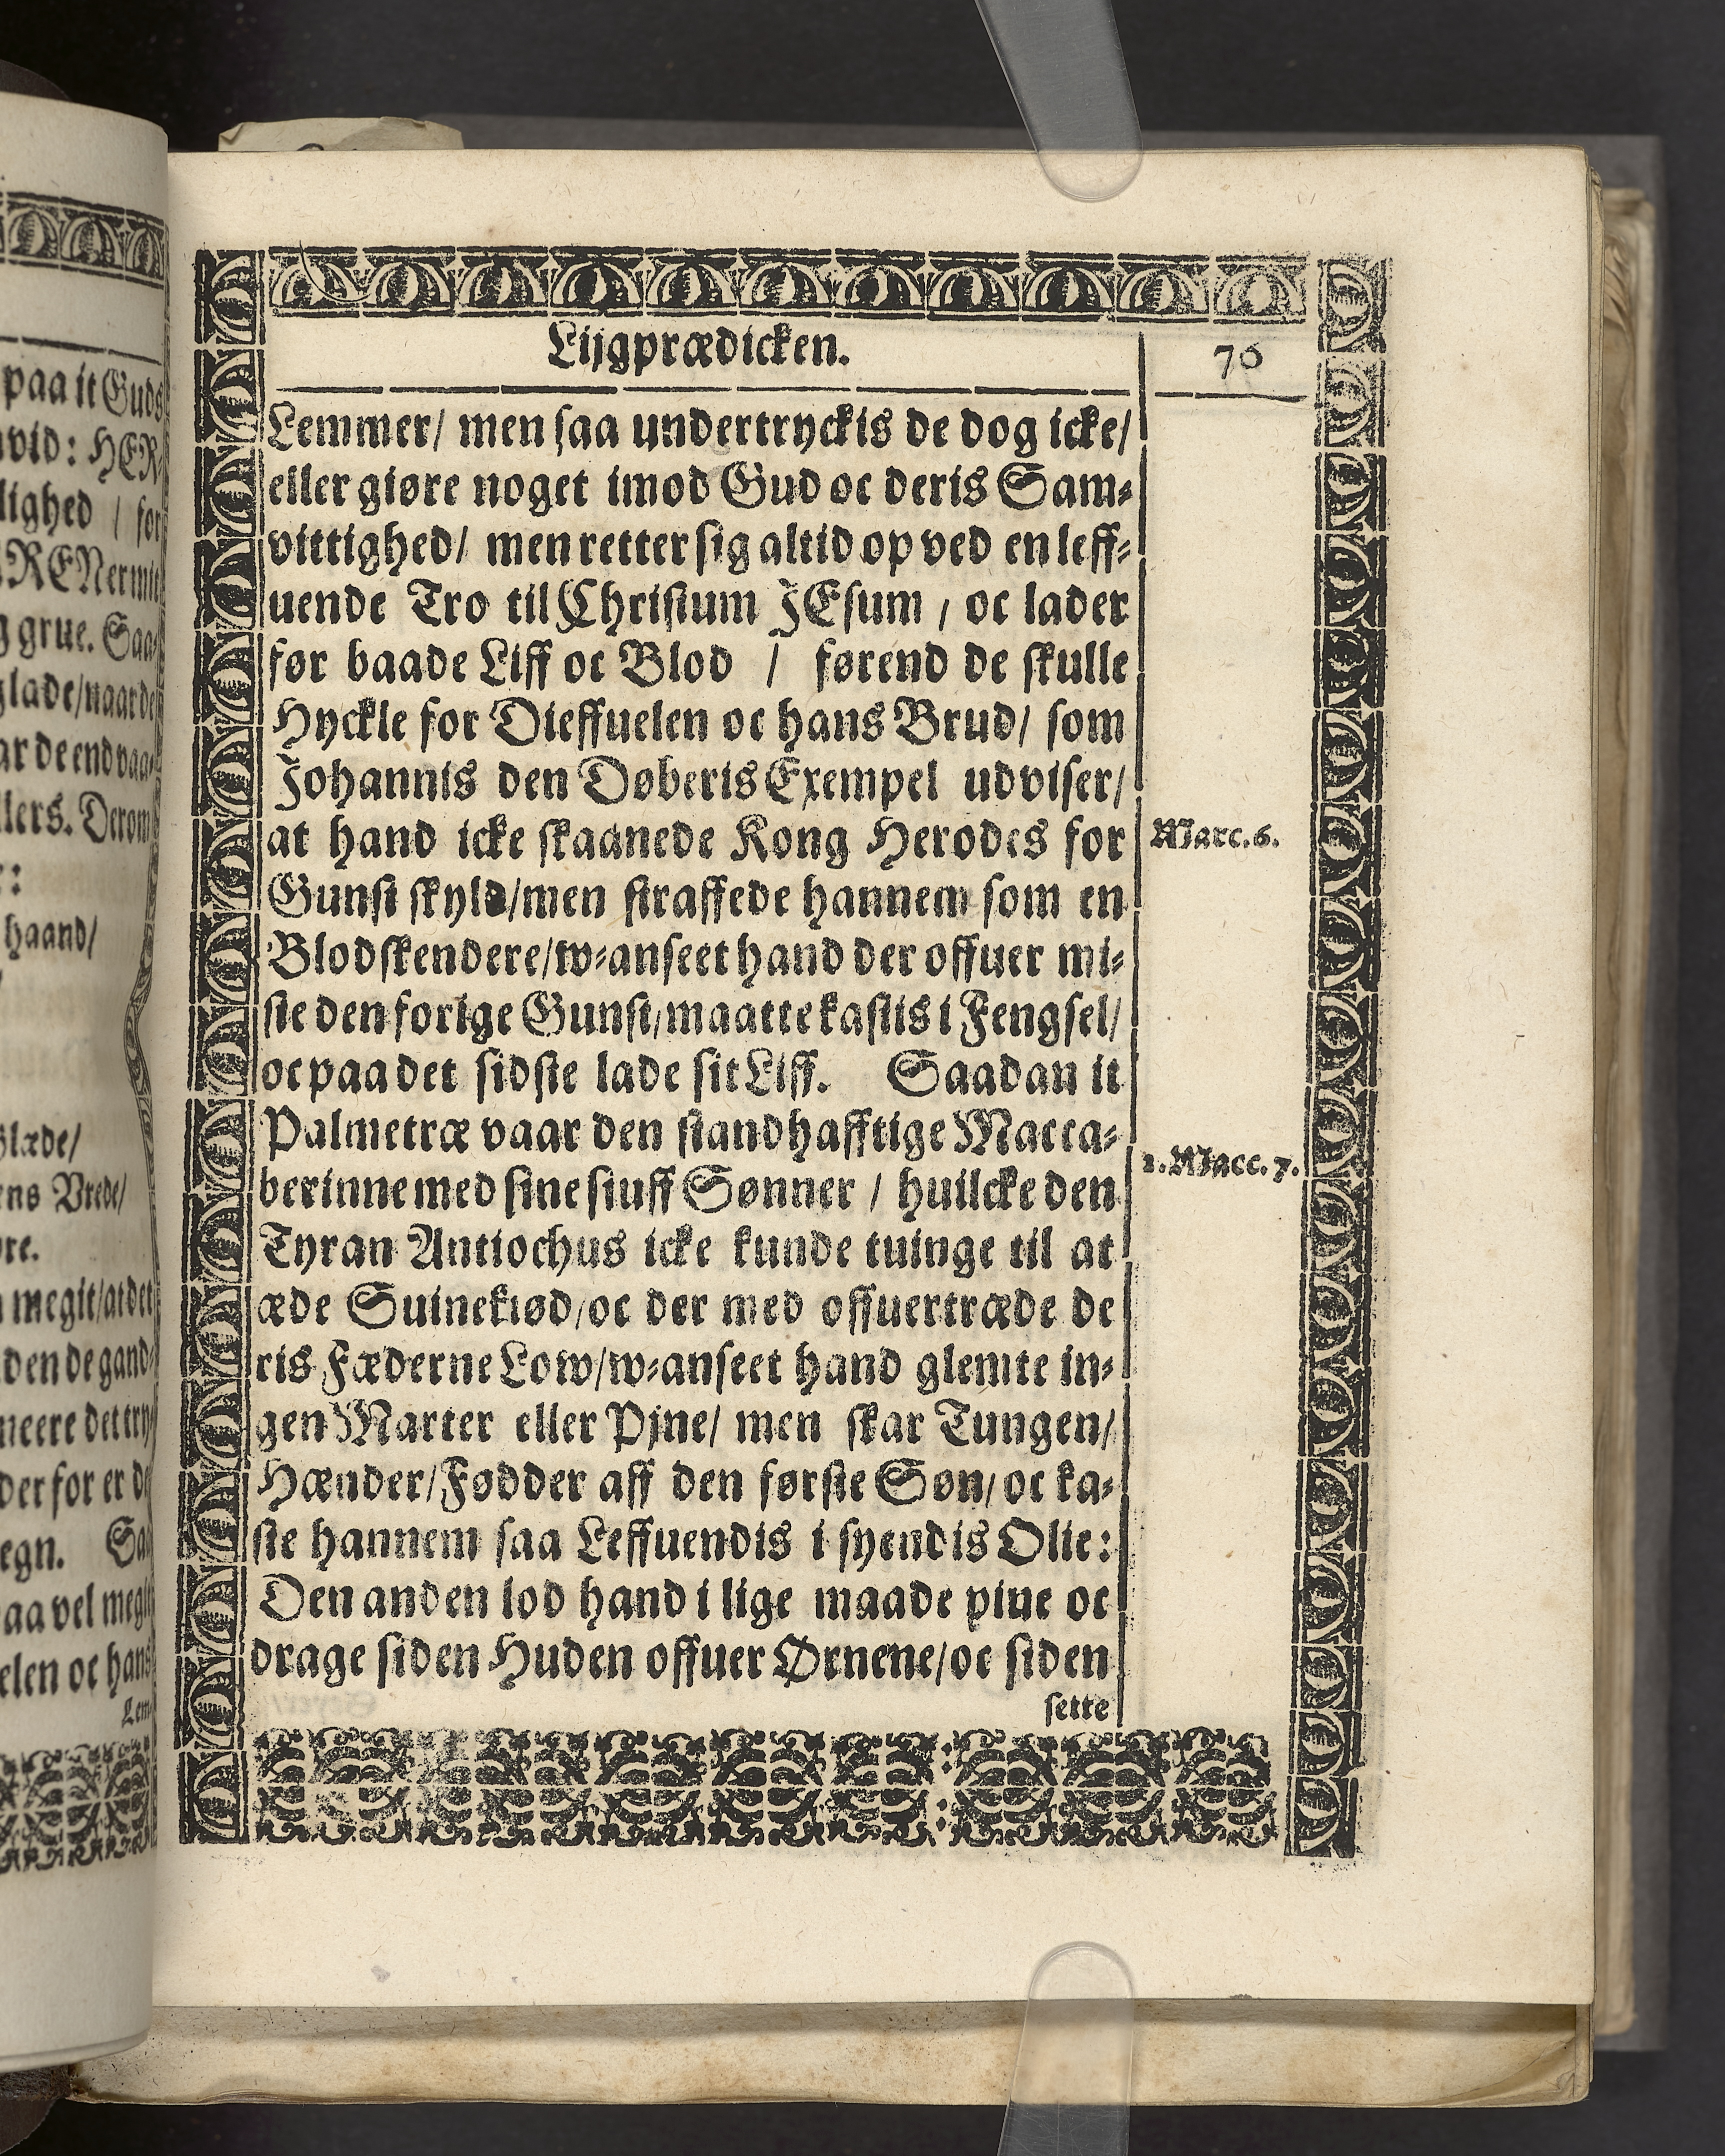 paa it Guds
vid: HER-
lighed / for
RENermit
g grue. Saa
glade/naar de
ar de end vaa-
llers. Derom
haand/
Glæde/
ens Vrede/
megit/at det
den de gand-
meere det try-
der for er de
egn. Saa
aa vel megit
elen oc hans
Lem-
Lijgprædicken.
76
Lemmer/ men saa undertryckis de dog icke/
eller giøre noget imod Gud oc deris Sam-
vittighed/ men retter sig altid op ved en leff-
uende Tro til Christum JEsum / oc lader
før baade Liff oc Blod / førend de skulle
Hyckle for Dieffuelen oc hans Brud/ som
Johannis den Døberis Exempel udviser/
at hand icke skaanede Kong Herodes for
Marc. 6.
Gunst skyld/men straffede hannem som en
Blodskendere/w-anseet hand der offuer mi-
ste den forige Gunst/maatte kastis i Fengsel/
oc paa det sidste lade sit Liff. Saadan it
Palmetræ vaar den standhafftige Macca-
berinne med sine siuff Sønner / huilcke den
2. Macc. 7.
Tyran Antiochus icke kunde tuinge til at
æde Suinekiød/oc der med offuertræde de
ris Fæderne Low/w-anseet hand glemte in-
gen Marter eller Pjne/ men skar Tungen/
Hænder/Fødder aff den første Søn/oc ka-
ste hannem saa Leffuendis i syendis Olie:
Den anden lod hand i lige maade pine oc
drage siden Huden offuer Ørnene/oc siden
sette